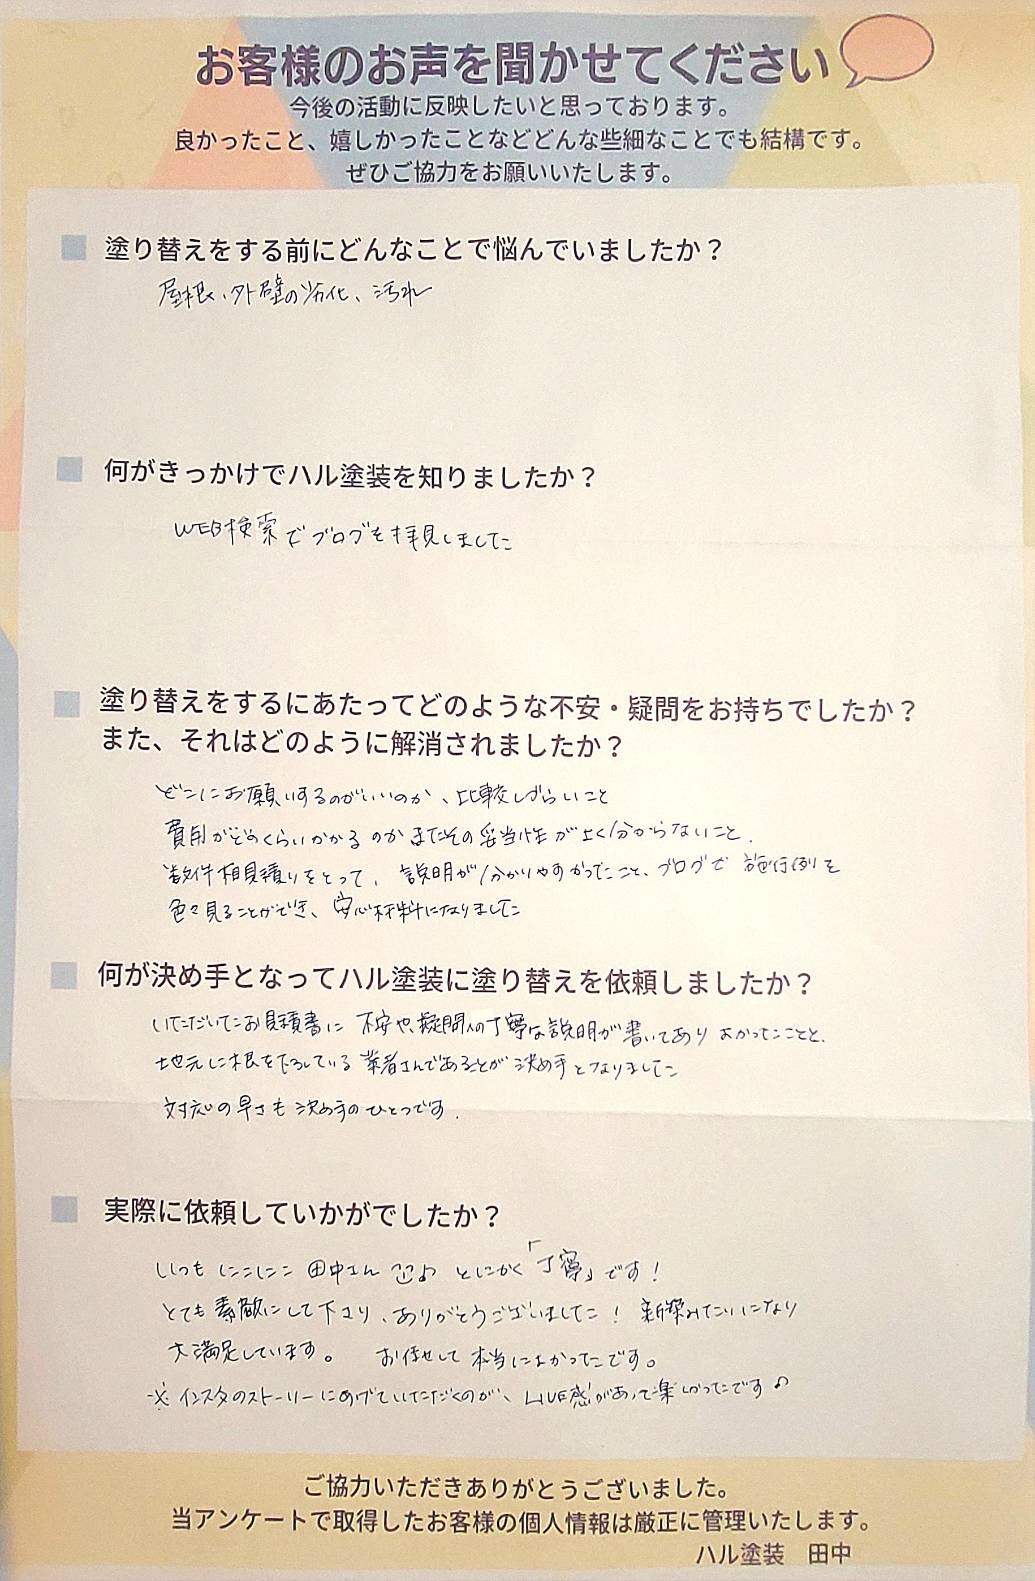 お客様のお声を聞かせてください
今後の活動に反映したいと思っております。
良かったこと、嬉しかったことなどどんな些細なことでも結構です。
ぜひご協力をお願いいたします。
塗り替えをする前にどんなことで悩んでいましたか？
屋根、外壁の劣化、汚れ
何がきっかけでハル塗装を知りましたか？
WEB検索でブログを拝見しました
塗り替えをするにあたってどのような不安・疑問をお持ちでしたか？
また、それはどのように解消されましたか？
どこにお願いするのがいいのか、比較しづらいこと
費用がどのくらいかかるのかまたその妥当性がよく分からないこと.
数件相見積りをとって、説明が分かりやすかったこと、ブログで施行例を
色々見ることができ、安心材料になりました
何が決め手となってハル塗装に塗り替えを依頼しましたか？
いただいたお見積書に不安や疑問への丁寧な説明が書いてありよかったことと、
地元に根を下ろしている業者さんであることが決め手となりました
対応の早さも決め手のひとつです.
実際に依頼していかがでしたか？
いつもにこにこ田中さん♪とにかく「丁寧」です！
とても素敵にして下さり、ありがとうございました！新築みたいになり
大満足しています。お任せして本当によかったです。
※インスタのストーリーにあげていただくのが、LIVE感があって楽しかったです♪
ご協力いただきありがとうございました。
当アンケートで取得したお客様の個人情報は厳正に管理いたします。
ハル塗装 田中